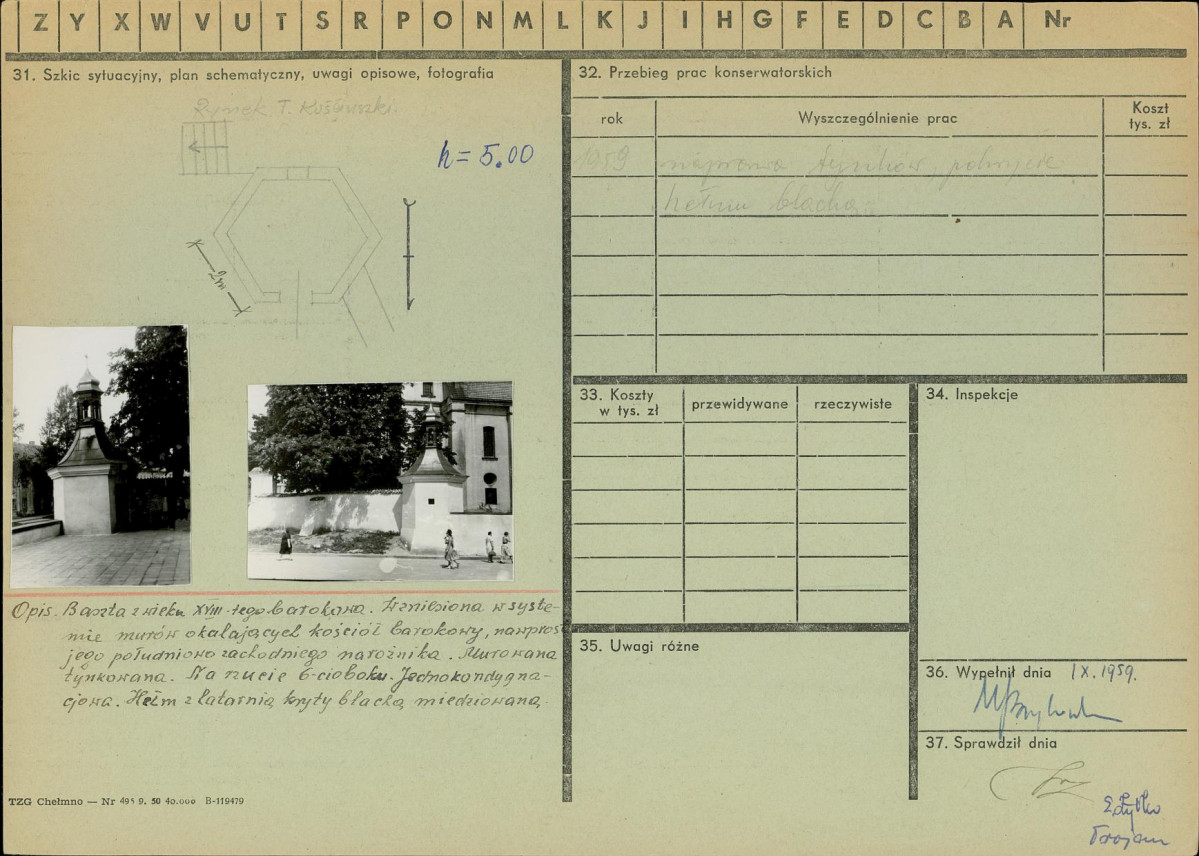 Z Y X W V U T S R P O N M L K J I H G F E D C B A Nr
31. Szkic sytuacyjny, plan schematyczny, uwagi opisowe, fotografia
Rynek T. Kościuszki
h = 5.00
2m
Opis. Baszta z wieku XVIII-tego barokowa. Wzniesiona w syste-
mie murów okalających kościół barokowy, nawprost
jego południowo zachodniego narożnika. Murowana
tynkowana. Na rzucie 6-cioboku. Jednokondygna-
cjowa. Hełm z latarnią kryty blachą miedziowaną.
TZG Chełmno — Nr 495 9. 50 40.000 B-119479
32. Przebieg prac konserwatorskich
rok Wyszczególnienie prac Koszt
tys. zł
1959 naprawa tynków, pokrycie
hełmu blachą
33. Koszty
w tys. zł
przewidywane rzeczywiste
34. Inspekcje
35. Uwagi różne
36. Wypełnił dnia IX. 1959.
37. Sprawdził dnia